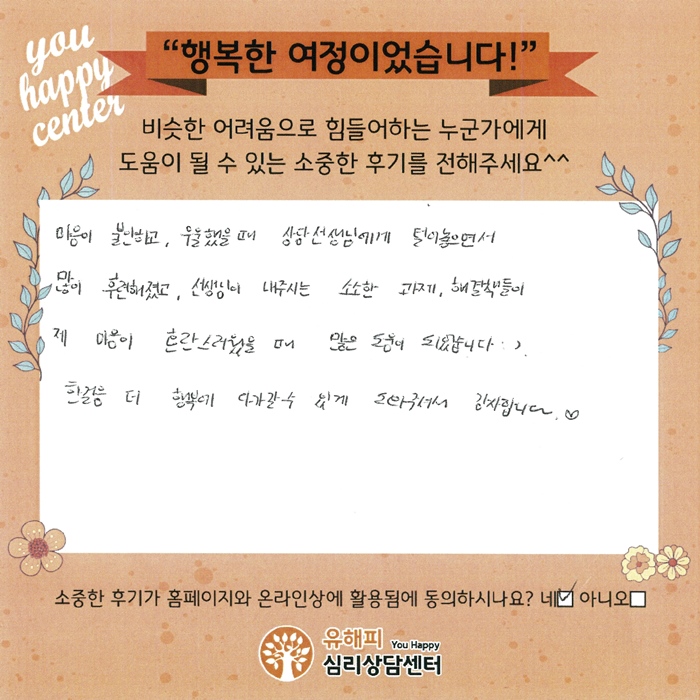 you
happy
center
“행복한 여정이었습니다!”
비슷한 어려움으로 힘들어하는 누군가에게
도움이 될 수 있는 소중한 후기를 전해주세요^^
마음이 불안하고, 우울했을 때 상담선생님에게 털어놓으면서
많이 후련해졌고, 선생님이 내주시는 소소한 과제, 해결책들이
제 마음이 혼란스러웠을 때 많은 도움이 되었습니다 :).
한걸음 더 행복에 다가갈 수 있게 도와주셔서 감사합니다. ♡
소중한 후기가 홈페이지와 온라인상에 활용됨에 동의하시나요? 네☑ 아니오☐
유해피 You Happy
심리상담센터